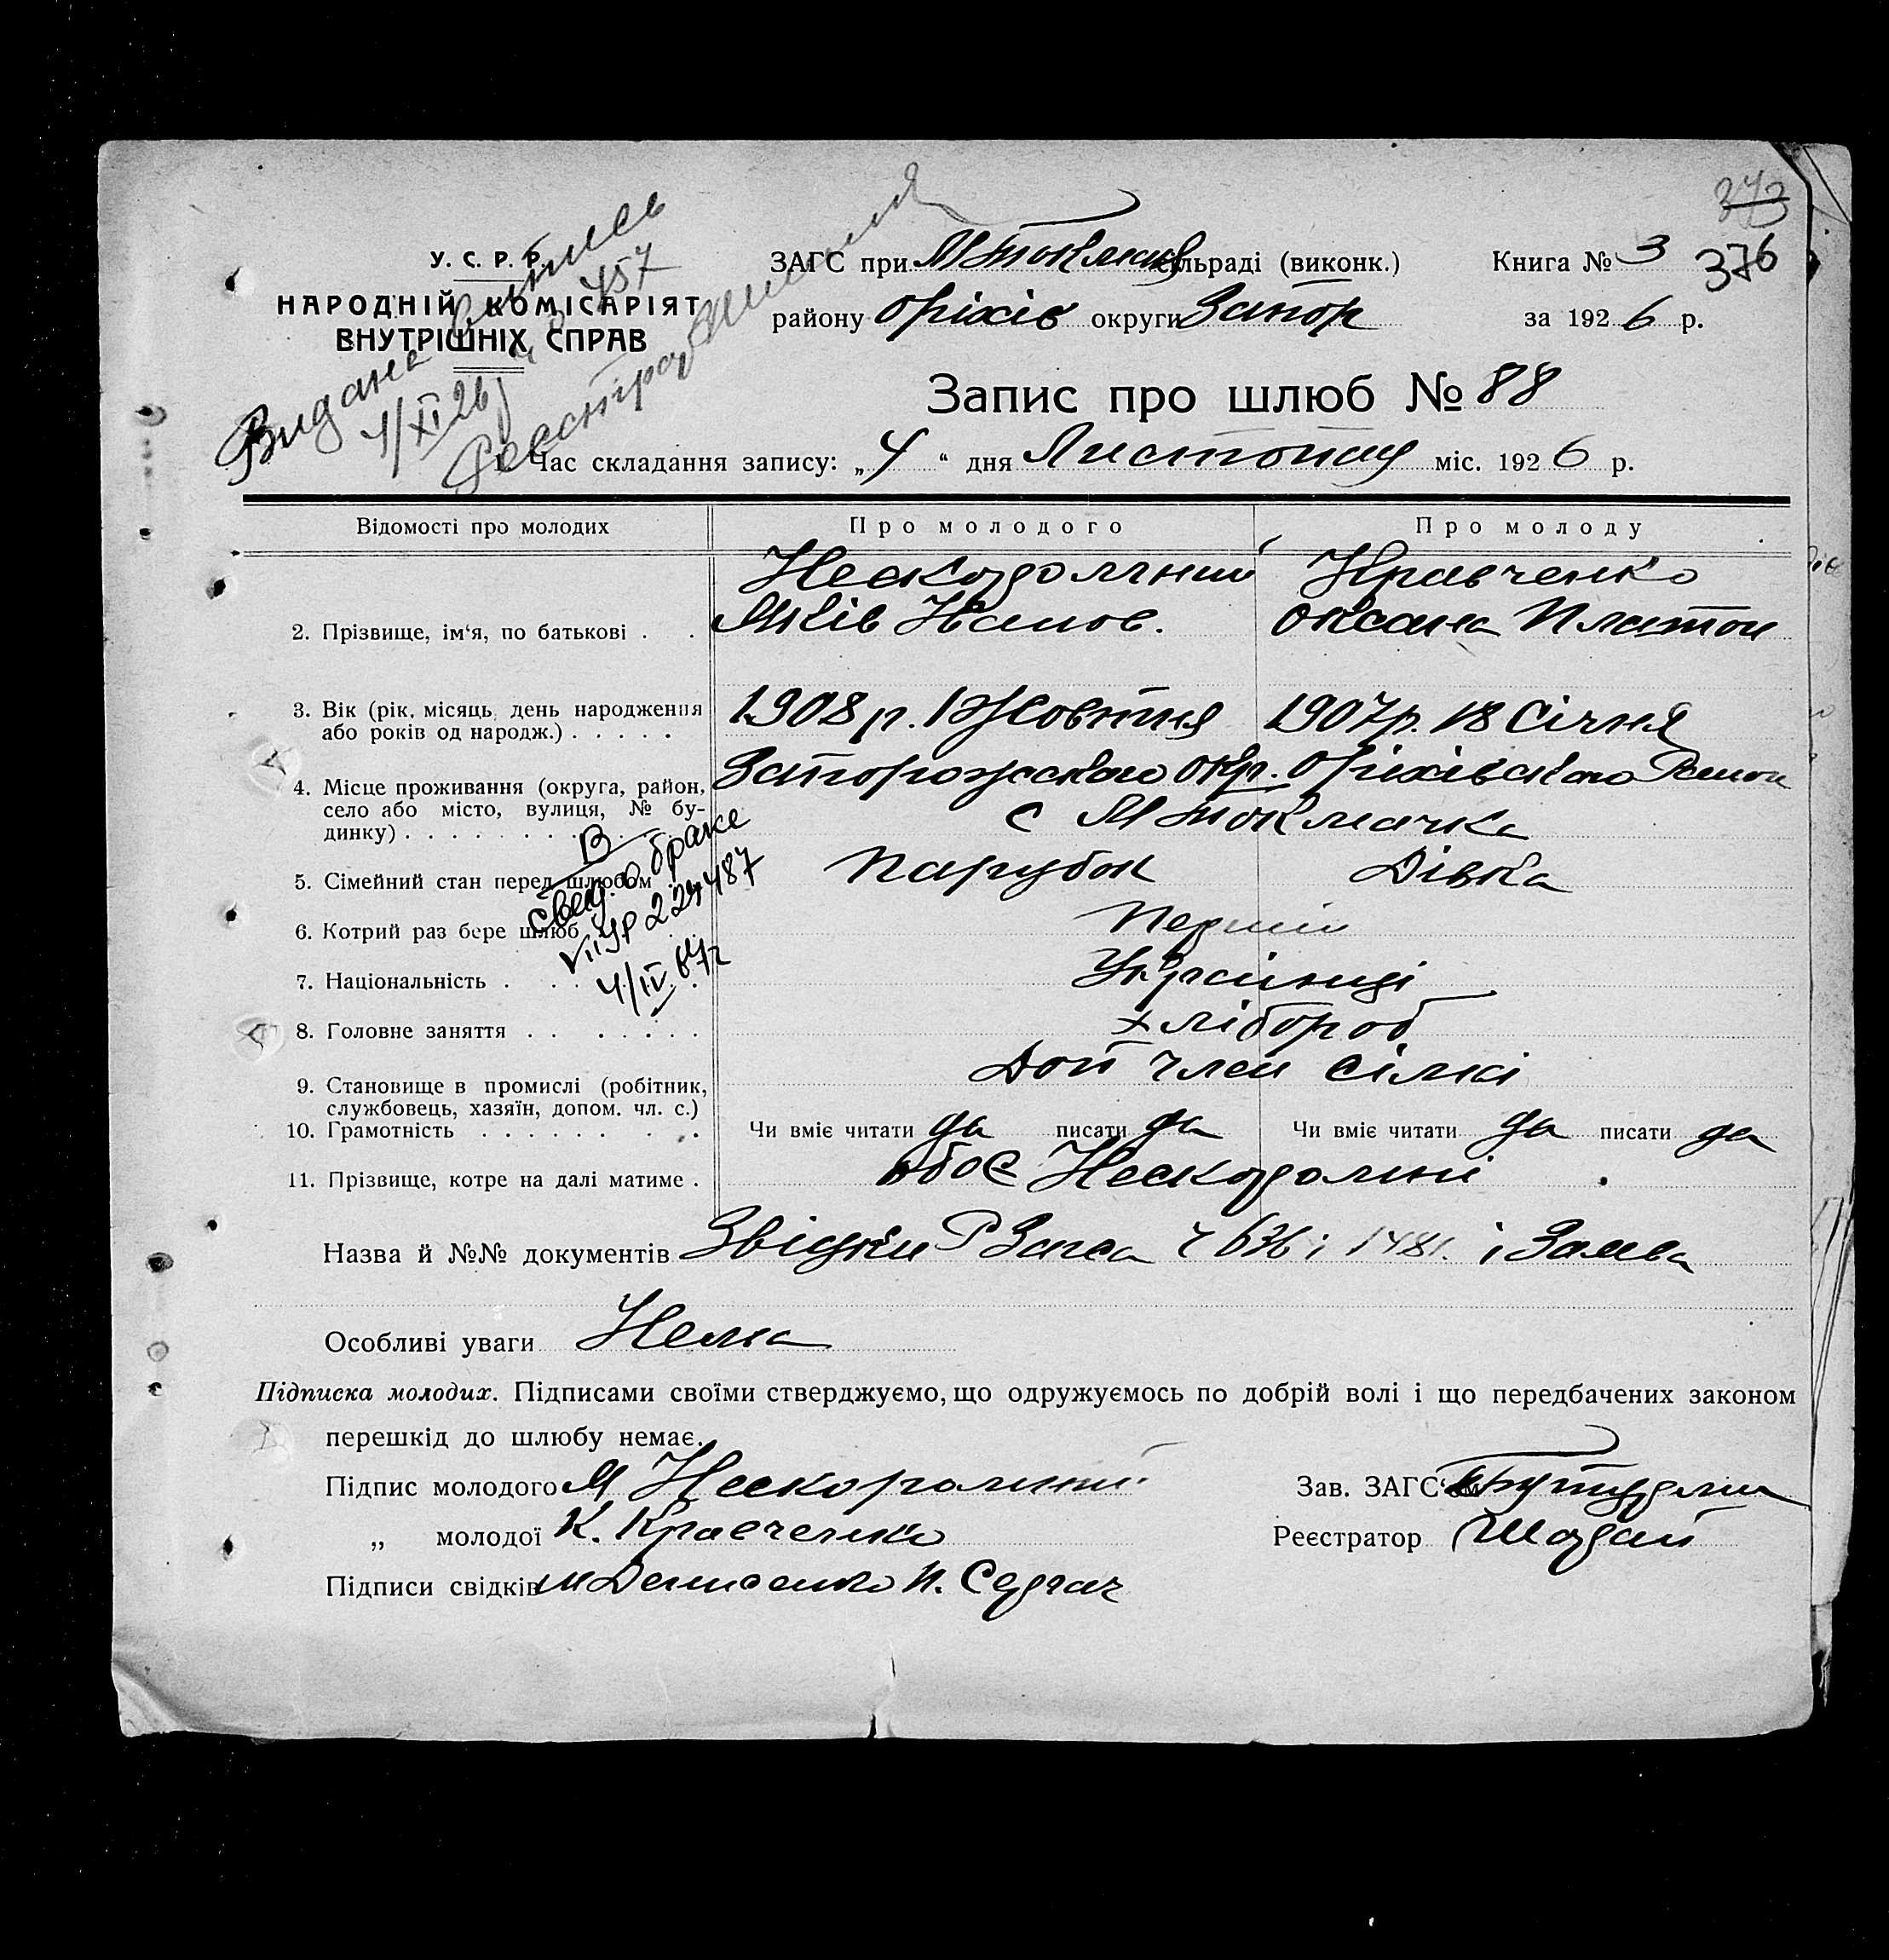 373
376
У. С. Р. Р.
НАРОДНІЙ КОМІСАРІЯТ
ВНУТРІШНІХ СПРАВ
Видана випись
4/XI 26 457
ЗАГС при М Токмац сільраді (виконк.)
Книга № 3
району Оріхів округи Запор
за 1926 р.
Запис про шлюб № 88
1. Час складання запису: „4“ дня Листопад міс. 1926 р.
Відомості про молодих
Про молодого
Про молоду
2. Прізвище, ім‘я, по батькові . .
Нескородяний
Яків Іванов.
Кравченко
Оксана Платон
3. Вік (рік, місяць, день народження
або років од народж.) . . . . .
1908 р. 1 Жовтня
1907 р. 18 Січня
4. Місце проживання (округа, район,
село або місто, вулиця, № бу-
динку) . . . . . . . . . .
Запорожського окр. Оріхівського Району
с М Токмачка
5. Сімейний стан перед шлюбом
Парубок
Дівка
6. Котрий раз бере шлюб
Перший
7. Національність . . . .
Українці
8. Головне заняття . . . . . . .
Хлібороб
9. Становище в промислі (робітник,
службовець, хазяїн, допом. чл. с.)
Доп член сімї
10. Грамотність . . . . . . . . .
Чи вміє читати да писати да
Чи вміє читати да писати да
11. Прізвище, котре на далі матиме .
обоє
В
свид. о браке
4/IV
Назва й №№ документів Звідки Р Загса ч 636 і 1481. і Заява
Особливі уваги Нема
Підписка молодих. Підписами своїми стверджуємо, що одружуємось по добрій волі і що передбачених законом
перешкід до шлюбу немає.
Підпис молодого
Зав. ЗАГС‘ом
„ молодої К. Кравченко
Реєстратор
Підписи свідків М Денисенко